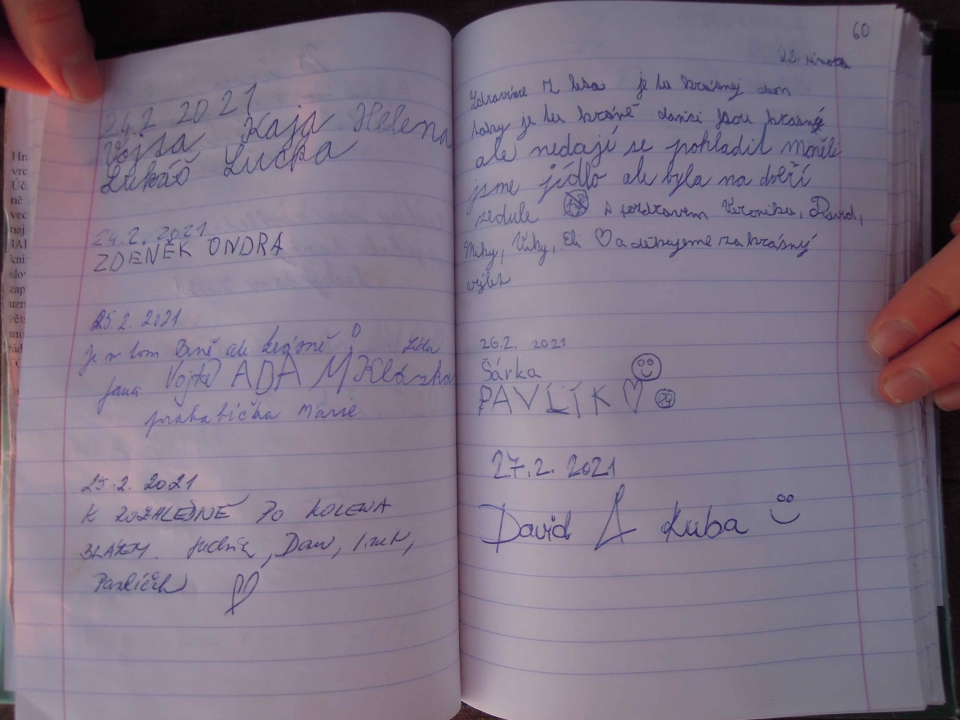 24.2 2021
Vojta Kája Helena
Lukáš Lucka
24.2. 2021
ZDENĚK ONDRA
25 2. 2021
Je v tom ale krásně
Jana Vojta ADAM Klárka
prababička Marie
25.2. 2021
K ROZHLEDNĚ PO KOLENA
BLÁTA. , Dan,
Pavlíček
60
Zdravíme Z lesa je tu krásný den
taky je tu krásně daňci jsou krásný
ale nedají se pohladit Měněli
jsme jídlo ale byla na dveří
cedule S pozdravem Veronika, David,
Viky, Eli a děkujeme za krásný
výlet
26.2. 2021
Šárka
PAVLÍK
27.2. 2021
David A Kuba